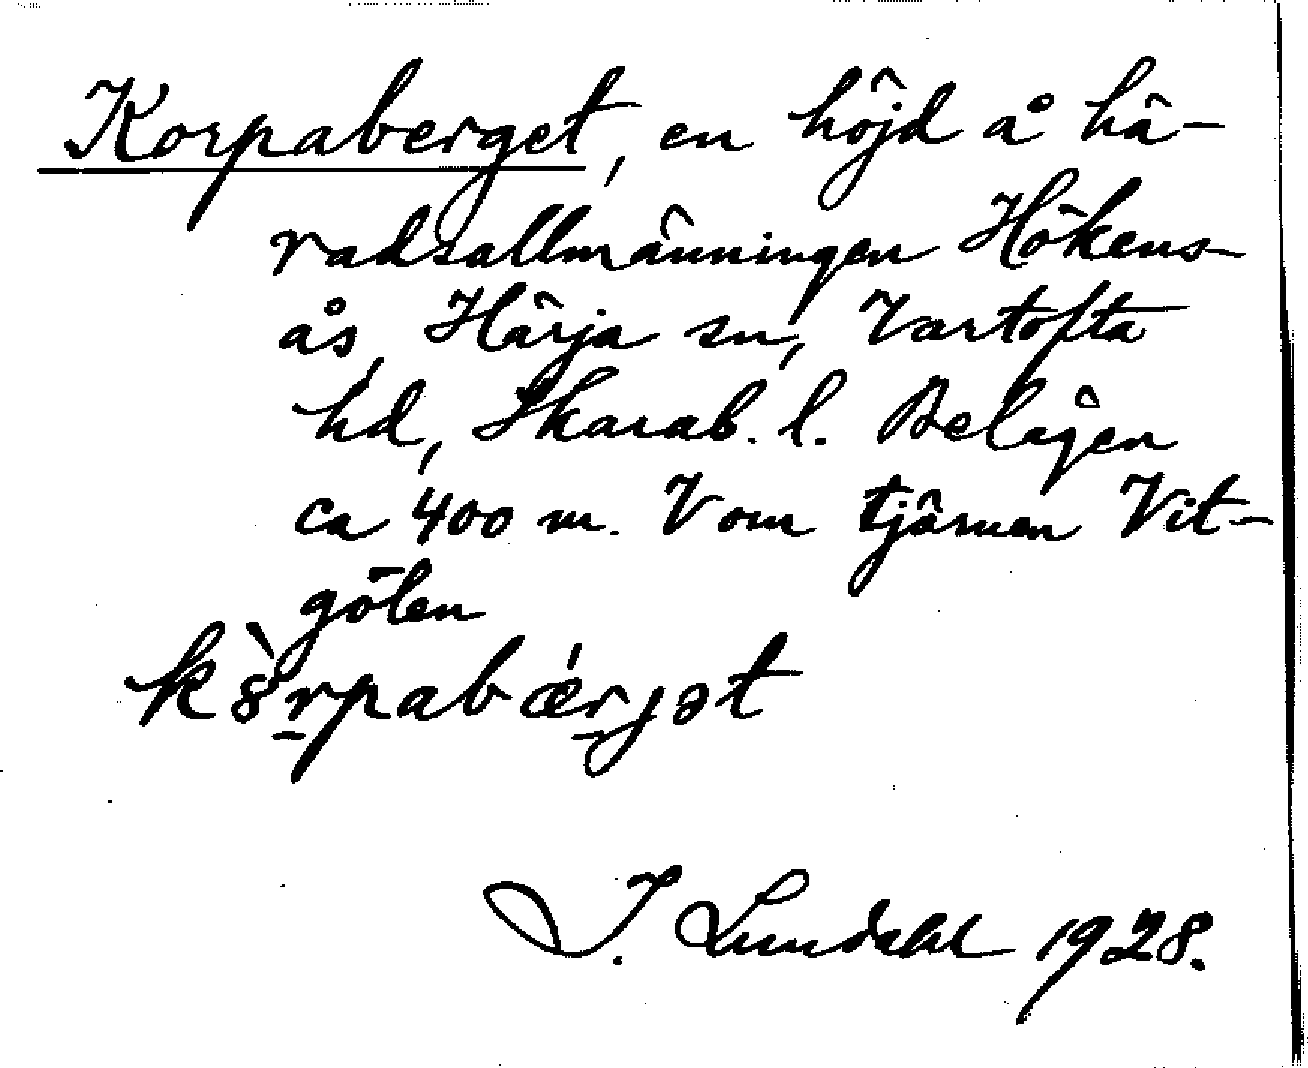 Korpaberget, en höjd å hä-
radsallmänningen Hökens-
ås, Härja sn, Vartofta
hd, Skarab. l. Belägen
ca 400 m. V om tjärnen Vit-
gölen
kȯ̀rpabǽrjət
I. Lundahl 1928.